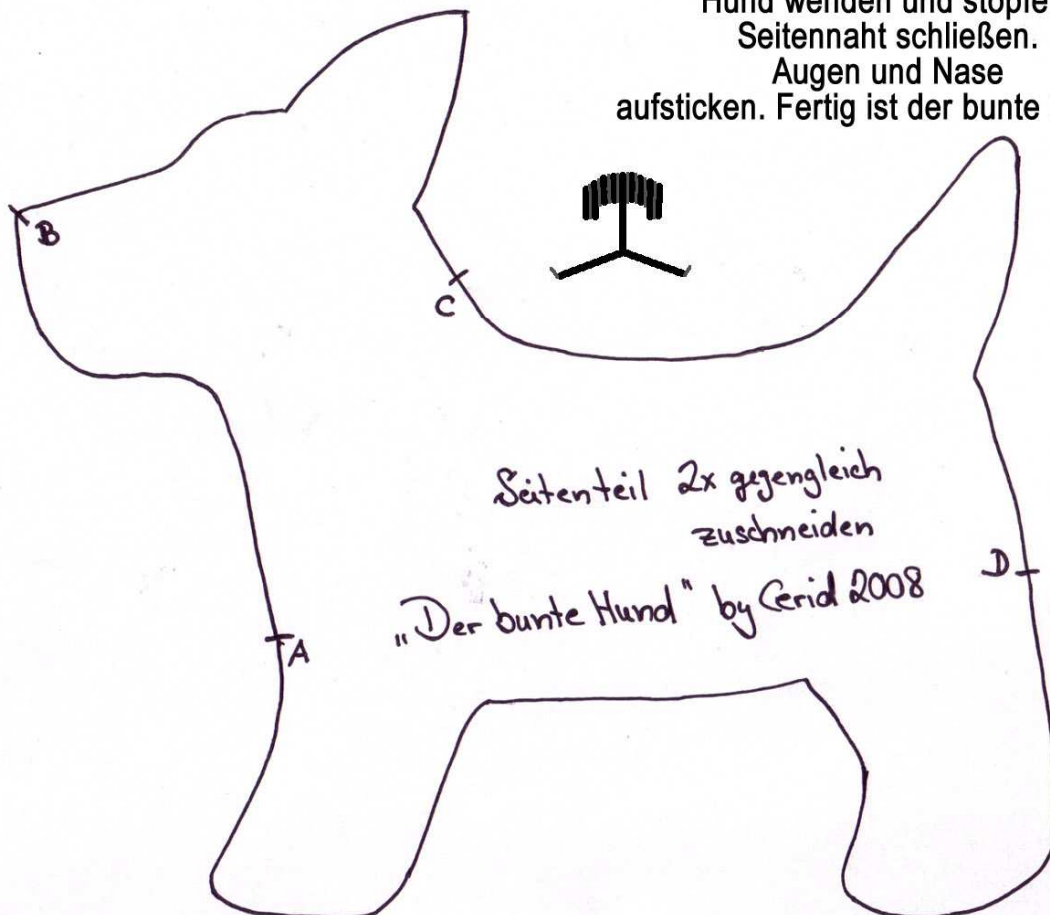 Hund wenden und stopfe
Seitennaht schließen.
Augen und Nase
aufsticken. Fertig ist der bunte
B
C
Seitenteil 2x gegengleich
zuschneiden
D
„Der bunte Hund" by Cerid 2008
A